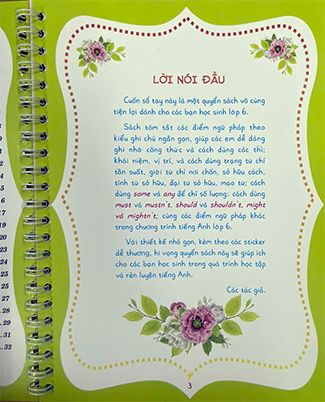 LỜI NÓI ĐẦU
Cuốn sổ tay này là một quyển sách vô cùng
tiện lợi dành cho các bạn học sinh lớp 6.
Sách tóm tắt các điểm ngữ pháp theo
kiểu ghi chú ngắn gọn, giúp các em dễ dàng
ghi nhớ công thức và cách dùng các thì;
khái niệm, vị trí, và cách dùng trạng từ chỉ
tần suất, giới từ chỉ nơi chốn, sở hữu cách,
tính từ sở hữu, đại từ sở hữu, mạo từ; cách
dùng some và any để chỉ số lượng; cách dùng
must và mustn't, should và shouldn't, might
và mightn't; cùng các điểm ngữ pháp khác
trong chương trình tiếng Anh lớp 6.
Với thiết kế nhỏ gọn, kèm theo các sticker
dễ thương, hi vọng quyển sách này sẽ giúp ích
cho các bạn học sinh trong quá trình học tập
và rèn luyện tiếng Anh.
Các tác giả.
3
27
28
29
31
32